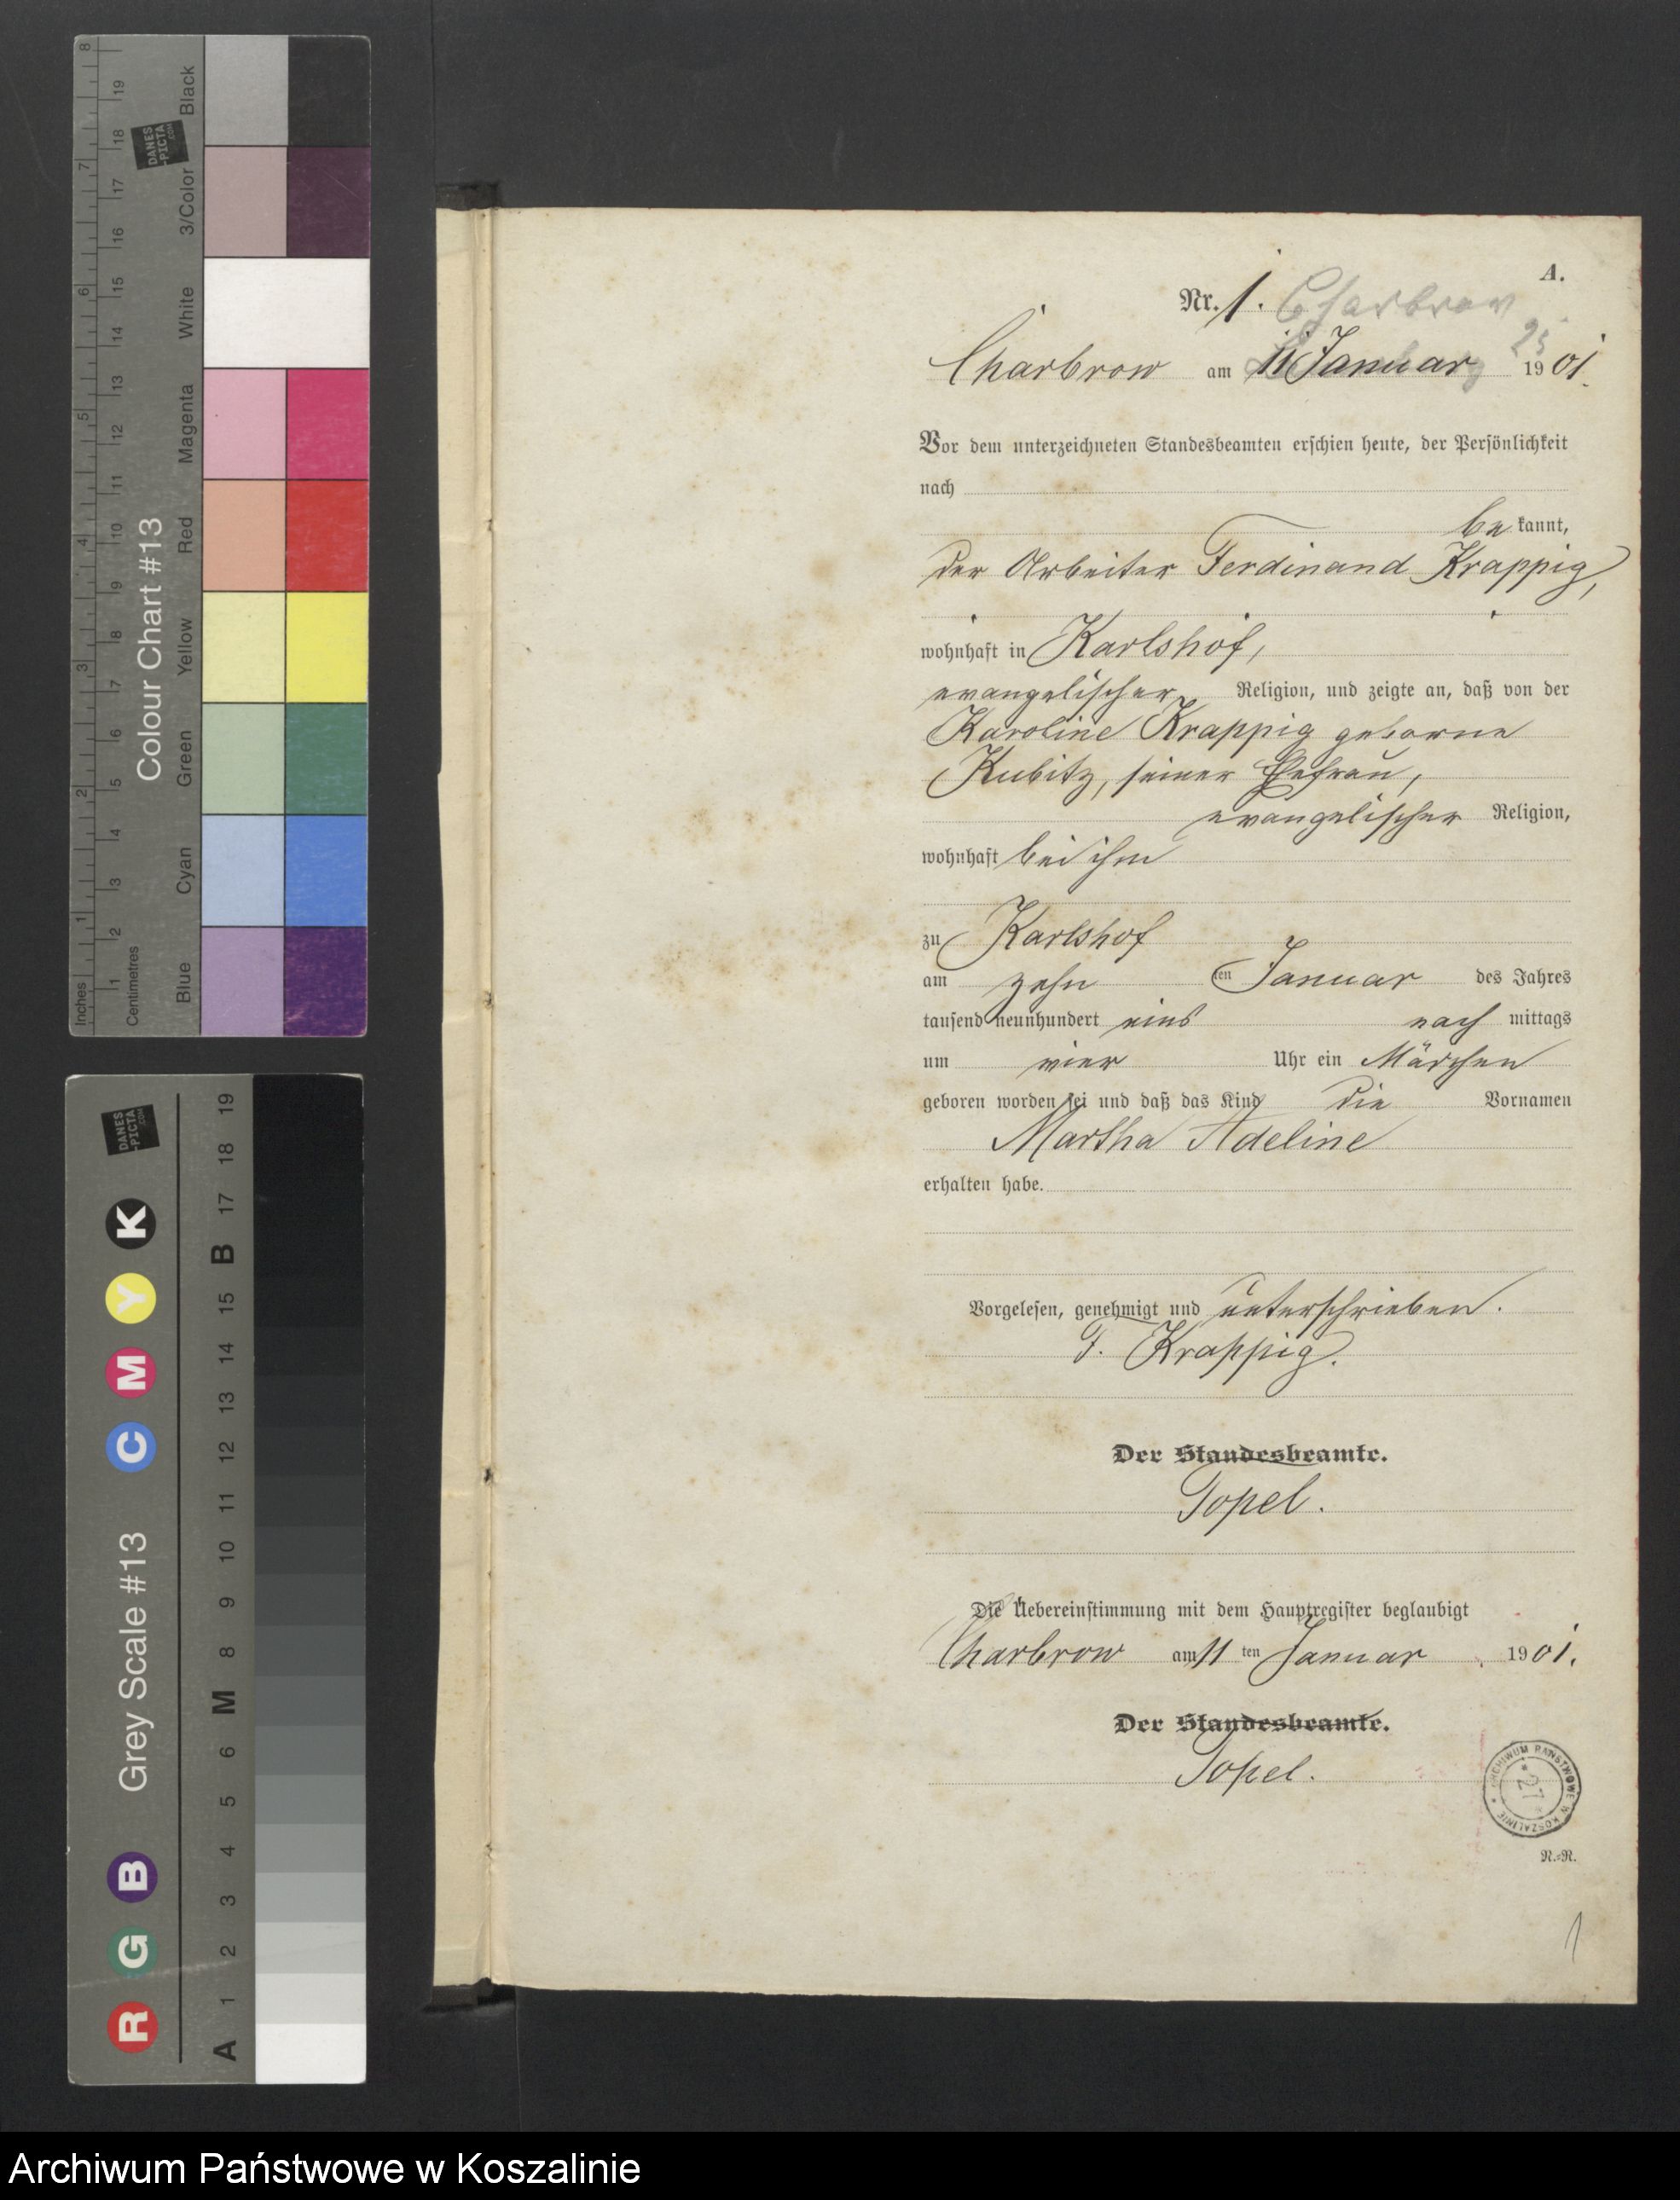 A.
Nr. 1. Charbrow
25
Charbrow am 11 Januar 1901.
Vor dem unterzeichneten Standesbeamten erschien heute, der Persönlichkeit
nach
be kannt,
der Arbeiter Ferdinand Krappig,
wohnhaft in Karlshof,
evangelischer Religion, und zeigte an, daß von der
Karoline Krappig geborne
Kubitz, seiner Ehefrau,
evangelischer Religion,
wohnhaft bei ihm
zu Karlshof
am zehn ten Januar des Jahres
tausend neunhundert eins nach mittags
um vier Uhr ein Mädchen
geboren worden sei und daß das Kind die Vornamen
Martha Adeline
erhalten habe.
Vorgelesen, genehmigt und unterschrieben.
F. Krappig.
Der Standesbeamte.
Topel.
Die Uebereinstimmung mit dem Hauptregister beglaubigt
Charbrow am 11 ten Januar 1901.
Der Standesbeamte.
Topel.
ARCHIWUM PAŃSTWOWE W KOSZALINIE
27
N.=R.
1
Colour Chart #13
Inches 1 2 3 4 5 6 7 8
Centimetres 1 2 3 4 5 6 7 8 9 10 11 12 13 14 15 16 17 18 19
Blue Cyan Green Yellow Red Magenta White 3/Color Black
DANES
-PICTA
.COM
Grey Scale #13
R G B C M Y K
A 1 2 3 4 5 6 M 8 9 10 11 12 13 14 15 B 17 18 19
DANES
-PICTA
.COM
Archiwum Państwowe w Koszalinie